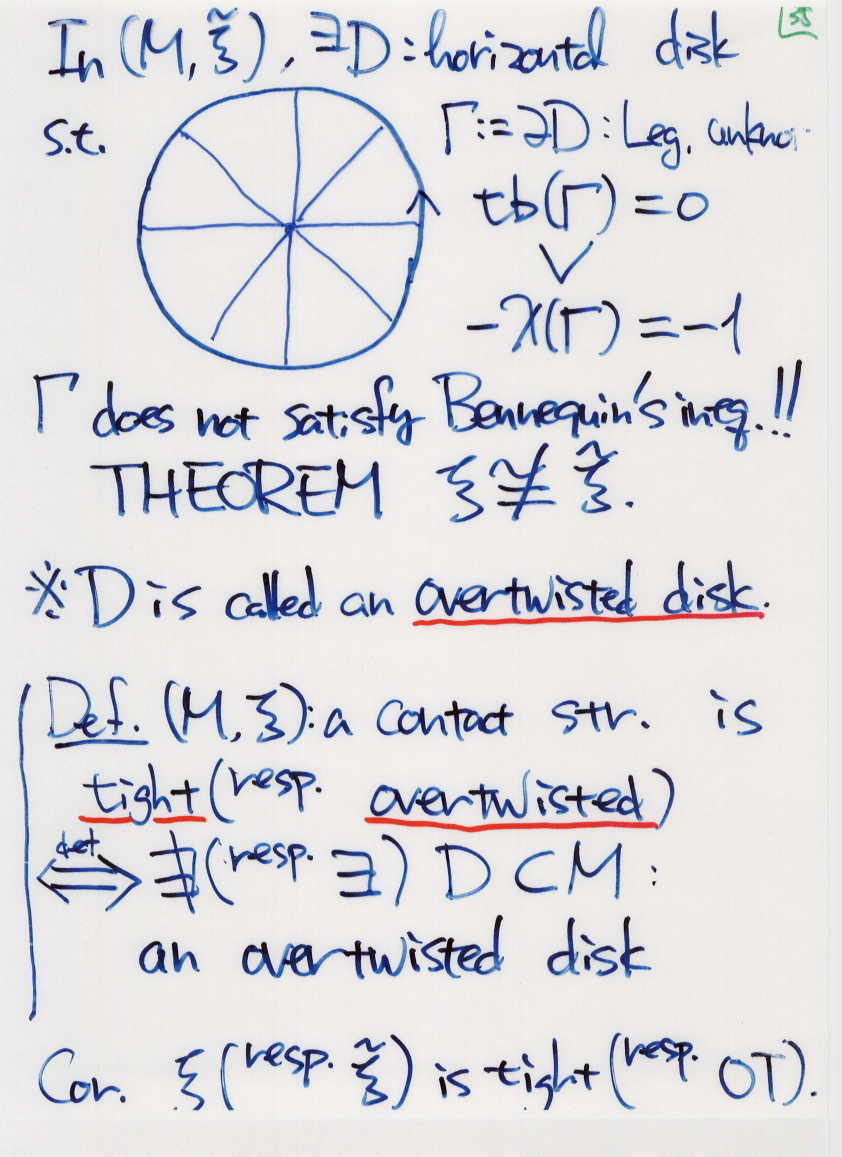 55
In (M, ξ̃), ∃D: horizontal disk
s.t.
Γ:=∂D: Leg. unkno
tb(Γ) = 0
∨
-χ(Γ) = -1
Γ does not satisfy Bennequin's ineq.!!
THEOREM ξ ≇ ξ̃.
※ D is called an overtwisted disk.
Def. (M, ξ): a contact str. is
tight (resp. overtwisted)
def
⟺ ∄ (resp. ∃) D ⊂ M :
an overtwisted disk
Cor. ξ (resp. ξ̃) is tight (resp. OT).